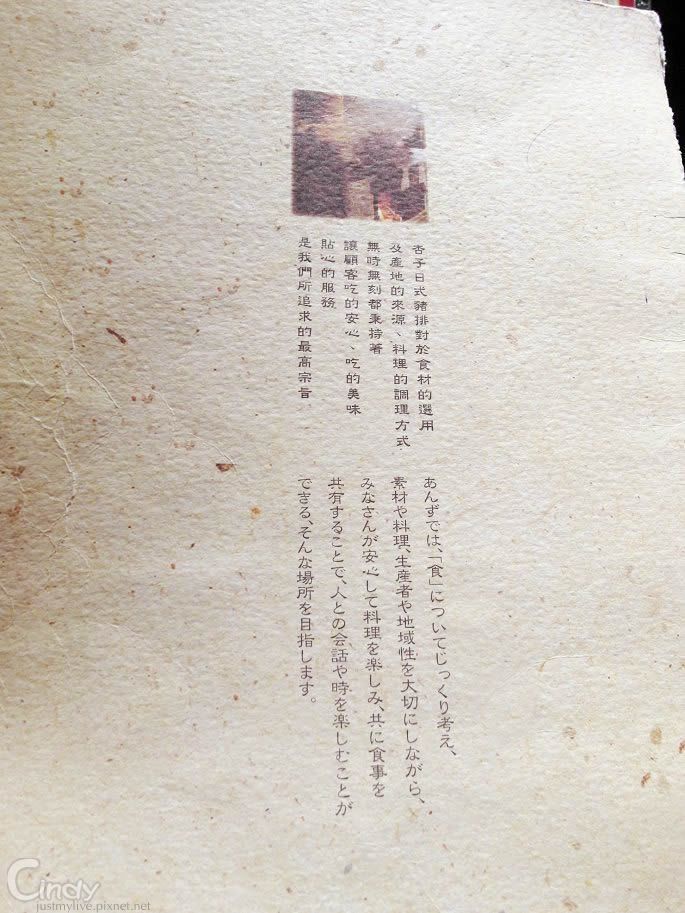 杏子日式豬排對於食材的選用
及產地的來源、料理的調理方式
無時無刻都秉持著
讓顧客吃的安心、吃的美味
貼心的服務
是我們所追求的最高宗旨
あんずでは、「食」についてじっくり考え、
素材や料理、生産者や地域性を大切にしながら、
みなさんが安心して料理を楽しみ、共に食事を
共有することで、人との会話や時を楽しむことが
できる、そんな場所を目指します。
Cindy
justmylive.pixnet.net